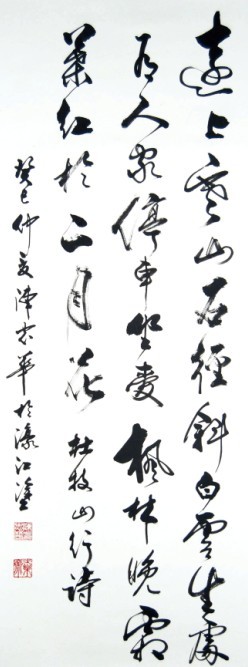 遠上寒山石徑斜白雲生處
有人家停車坐愛楓林晚霜
葉紅於二月花 杜牧山行詩
癸巳仲夏陳華於濠江